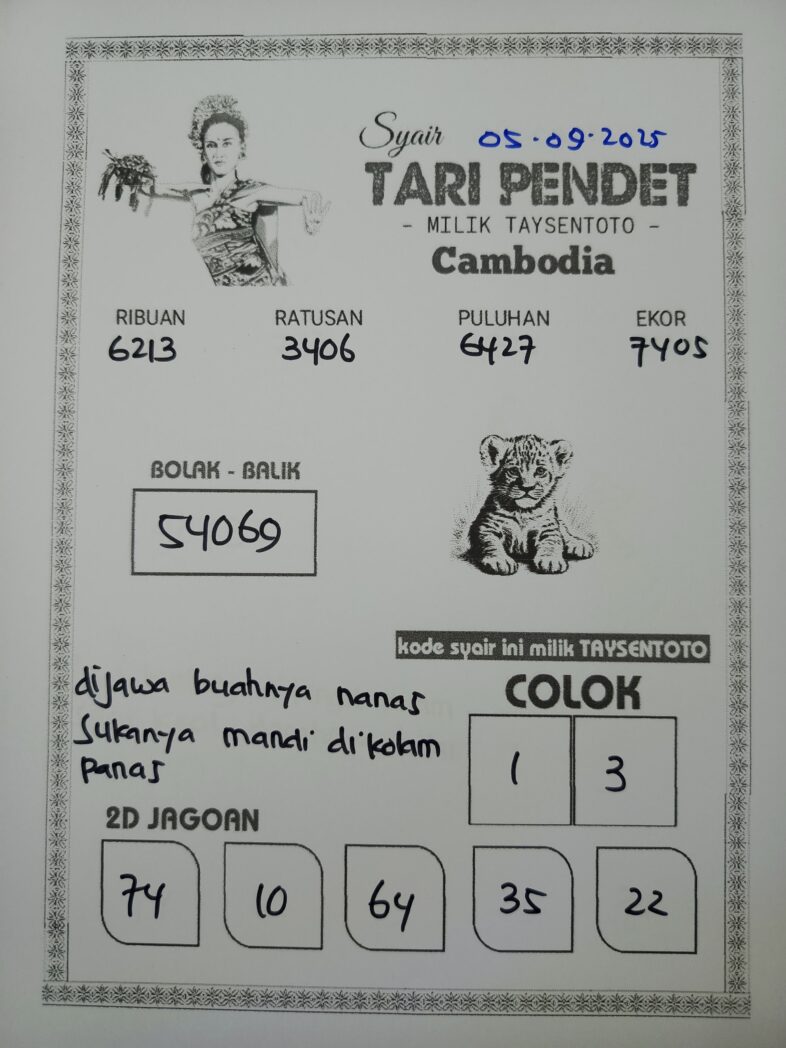 Syair 05.09.2025
TARI PENDET
- MILIK TAYSENTOTO -
Cambodia
RIBUAN RATUSAN PULUHAN EKOR
6213 3406 6427 7405
BOLAK - BALIK
54069
kode syair ini milik TAYSENTOTO
dijawa buahnya nanas
sukanya mandi dikolam
panas
COLOK
1 3
2D JAGOAN
74 10 64 35 22